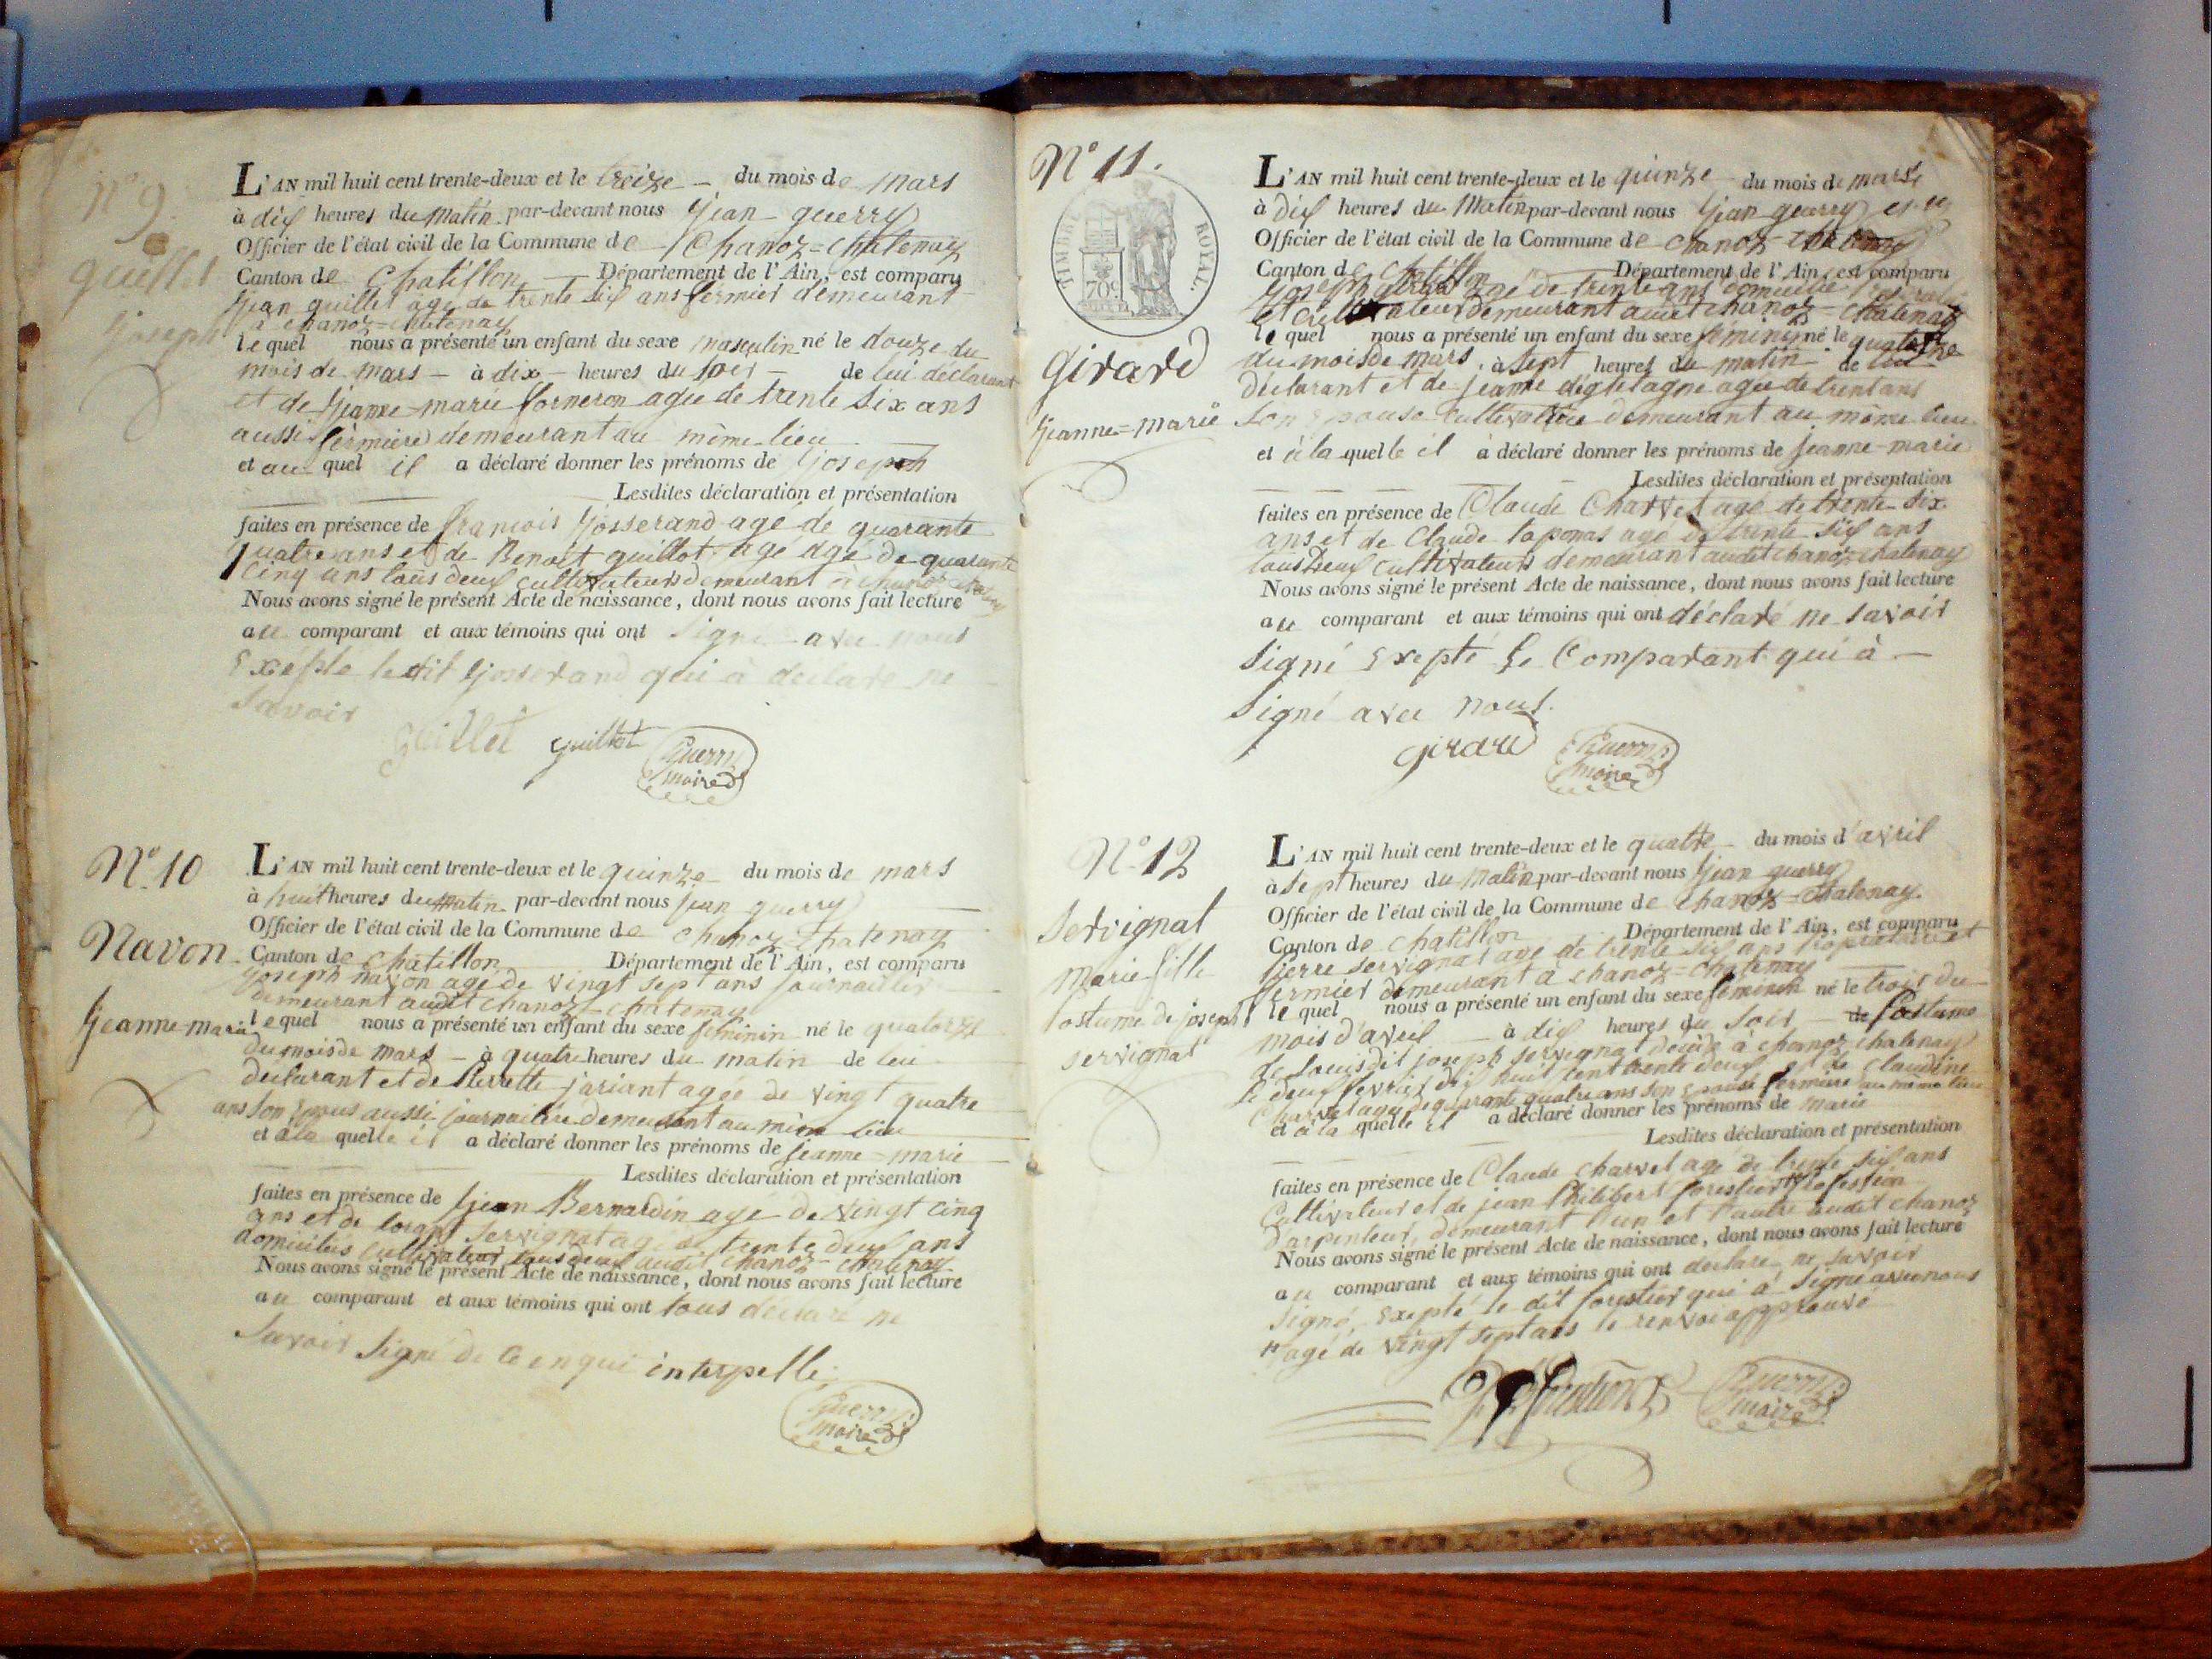 N° 9.
quillet
joseph
L'AN mil huit cent trente-deux et le treize du mois de mars
à dix heures du matin par-devant nous jean guerry
Officier de l'état civil de la Commune de Chanoz=chatenay
Canton de Chatillon Département de l'Ain, est comparu
jean quillet agé de trente six ans fermier demeurant
à chanoz=chatenay
le quel nous a présenté un enfant du sexe masculin né le douze du
mois de mars - à dix - heures du soir - de lui déclarant
et de jeanne-marie forneron agée de trente six ans
aussi fermiere demeurant au même lieu
et au quel il a déclaré donner les prénoms de joseph
Lesdites déclaration et présentation
faites en présence de françois josserand agé de quarante
quatre ans et de Benoit guillot agé agé de quarante
cinq ans tous deux cultivateurs demeurant à chanoz chatenay
Nous avons signé le présent Acte de naissance, dont nous avons fait lecture
au comparant et aux témoins qui ont signé avec nous
Exepté ledit josserand qui à déclaré ne
savoir
quillet guillot Guerry
maire
N° 10
Navon
jeanne-marie
L'AN mil huit cent trente-deux et le quinze du mois de mars
à huit heures du matin par-devant nous jean guerry
Officier de l'état civil de la Commune de chanoz-chatenay
Canton de chatillon Département de l'Ain, est comparu
joseph navon agé de vingt sept ans journailier
demeurant audit chanoz-chatenay
le quel nous a présenté un enfant du sexe feminin né le quatorze
du mois de mars - à quatre heures du matin de lui
declarant et de Pierrette jariant agée de vingt quatre
ans son Epous aussi journailire demeurant au même lieu
et à la quelle il a déclaré donner les prénoms de jeanne-marie
Lesdites déclaration et présentation
faites en présence de jean Bernardin agé de vingt cinq
ans et de servignat agé de trente deux ans
domiciliés cultivateur tous deux audit chanoz-chatenay
Nous avons signé le présent Acte de naissance, dont nous avons fait lecture
au comparant et aux témoins qui ont tous déclaré ne
savoir signé de ce enqui interpellé
Guerry
maire
N° 11.
TIMBRE ROYAL.
70c
girard
jeanne=marie
L'AN mil huit cent trente-deux et le quinze du mois de mars
à dix heures du matin par-devant nous jean guerry
Officier de l'état civil de la Commune de chanoz-chatenay
Canton de chatillon Département de l'Ain, est comparu
joseph girard agé de trente ans
et cultivateur demeurant audit chanoz=chatenay
le quel nous a présenté un enfant du sexe féminin né le quatorze
du mois de mars, à sept heures du matin de lui
déclarant et de jeanne agée de trent ans
son epouse cultivatrice demeurant au même lieu
et à la quelle il à déclaré donner les prénoms de jeanne-marie
Lesdites déclaration et présentation
faites en présence de Claude Charvet agé de trente-six
ans et de Claude taponas agé de trente six ans
tous deux cultivateurs demeurant audit chanoz chatenay
Nous avons signé le présent Acte de naissance, dont nous avons fait lecture
au comparant et aux témoins qui ont déclaré ne savoir
signé Exepté Le Comparant qui à -
signé avec nous.
girard Guerry
maire
N° 12
Servignat
marie fille
Postume de joseph
servignat
L'AN mil huit cent trente-deux et le quatre du mois d'avril
à sept heures du matin par-devant nous jean guerry
Officier de l'état civil de la Commune de chanoz=chatenay.
Canton de chatillon Département de l'Ain, est comparu
pierre servignat agé de trente six ans propriétaire et
fermier demeurant à chanoz=chatenay
le quel nous a présenté un enfant du sexe féminin né le trois du
mois d'avril à dix heures du soir - de Postume
de Louis dit joseph servignat décédé à chanoz chatenay
le deux fevrier dix huit cent trente deux et de claudine
Charvet agée de quarante quatre ans son epouse fermiere au même lieu
et à la quelle il a déclaré donner les prénoms de marie
Lesdites déclaration et présentation
faites en présence de Claude charvet agé de trente six ans
Cultivateur et de jean Philibert forestier Profession
d'arpenteur, demeurant l'un et l'autre audit chanoz
Nous avons signé le présent Acte de naissance, dont nous avons fait lecture
au comparant et aux témoins qui ont déclaré ne savoir
signé, Exepté le dit forestier qui à signé avec nous
agé de vingt sept ans le renvoi approuvé
Guerry
maire